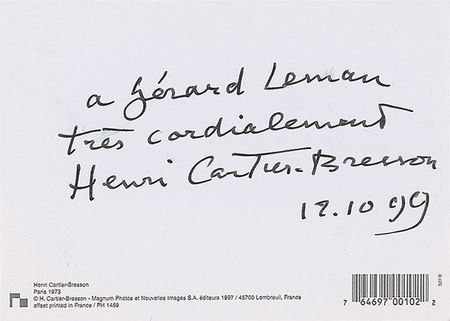 a Gérard Leman
très cordialement
Henri Cartier-Bresson
12.10 99
Henri Cartier-Bresson
Paris 1973
© H. Cartier-Bresson - Magnum Photos et Nouvelles Images S.A. éditeurs 1997 / 45700 Lombreuil, France
offset printed in France / PH 1459
7 64697 00102 2